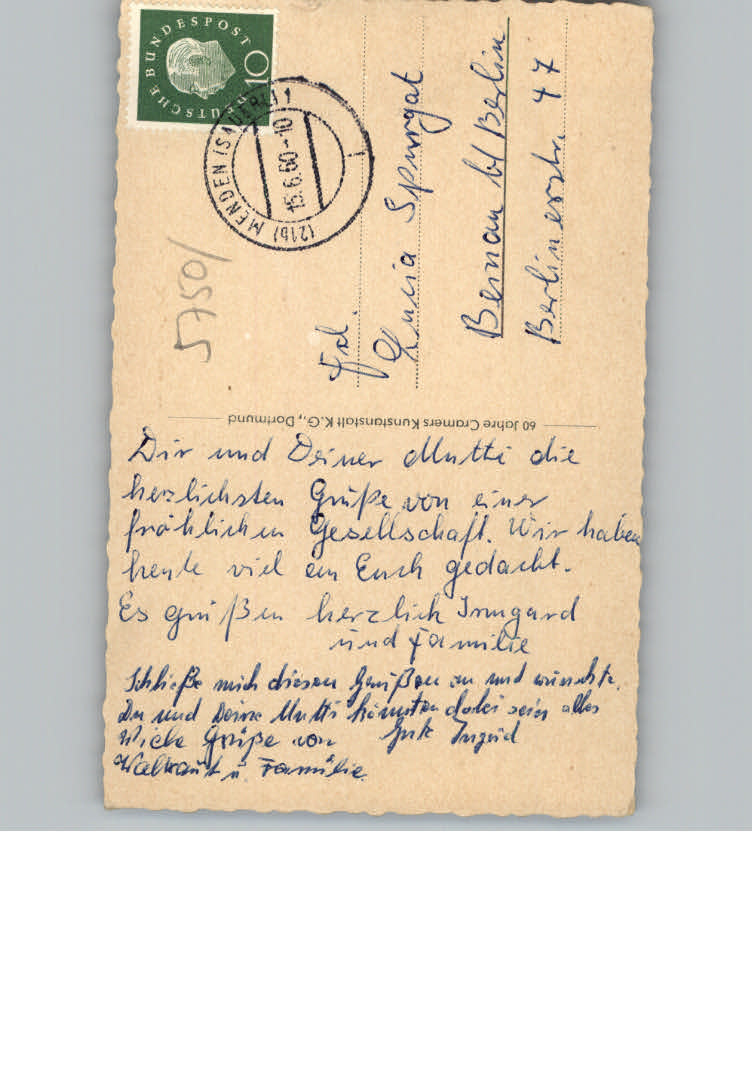 DEUTSCHE BUNDESPOST
10
(21b) MENDEN (SAUERL) 1
15.6.60-10
5750/
Frl.
Lucia Spurgat
Bernau b/Berlin
Berlinerstr. 47
60 Jahre Cramers Kunstanstalt K.G., Dortmund
Dir und Deiner Mutti die
herzlichsten Grüße von einer
fröhlichen Gesellschaft. Wir haben
heute viel an Euch gedacht.
Es grüßen herzlich Irmgard
und Familie
Schließe mich diesen Grüßen an und wünschte
Du und Deine Mutti könnten dabei sein alles
Viele Grüße von Gute Ingrid
Waltraut u. Familie